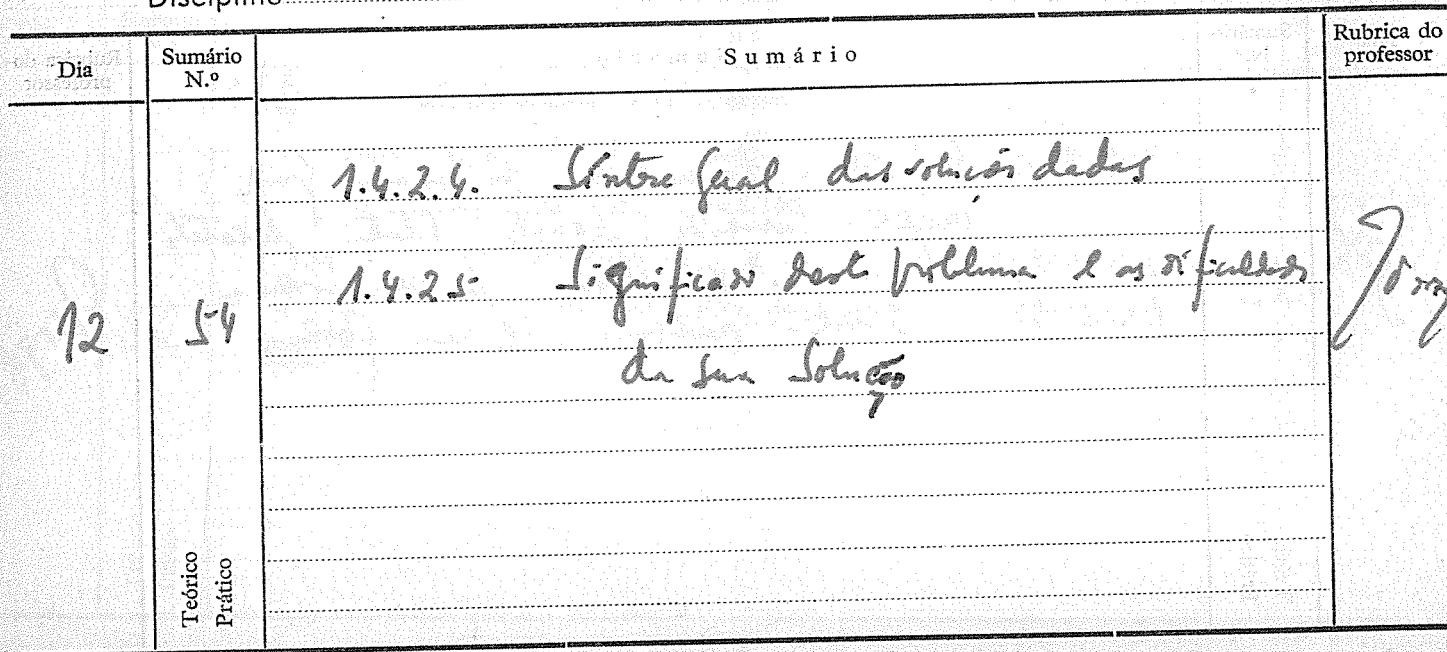 Disciplina
Dia
Sumário
N.º
Sumário
Rubrica do
professor
1.4.2.4. Síntese geral das soluções dadas
1.4.2.5 Significado deste problema e as dificuldades
12
54
da sua Solução
Teórico
Prático